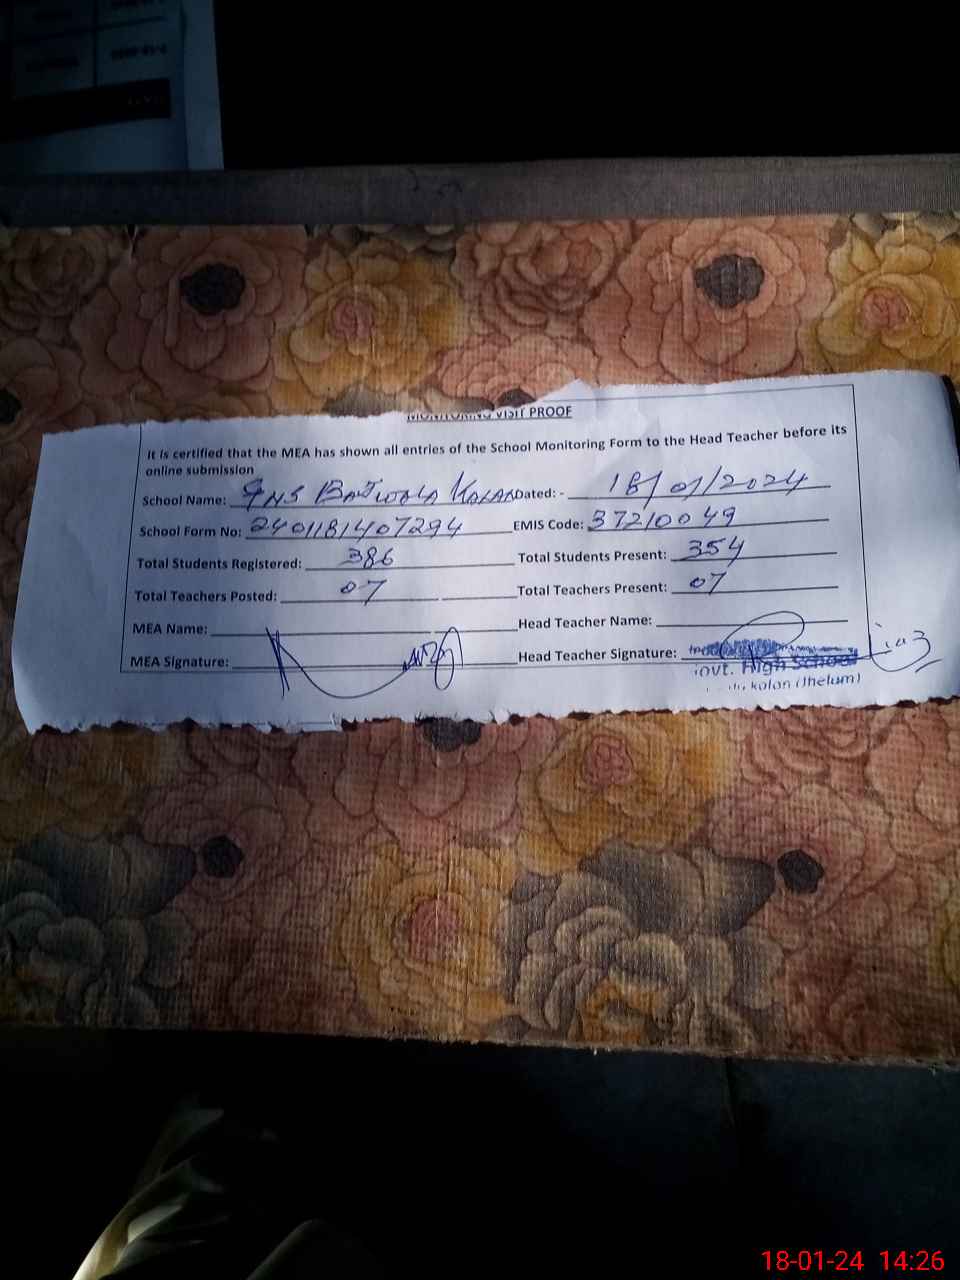 MONITORING VISIT PROOF
It is certified that the MEA has shown all entries of the School Monitoring Form to the Head Teacher before its
online submission
School Name: GHS Kolan Dated: - 18/01/2024
School Form No: 2401181407294 EMIS Code: 37210049
Total Students Registered: 386 Total Students Present: 354
Total Teachers Posted: 07 Total Teachers Present: 07
MEA Name: Head Teacher Name:
MEA Signature: Head Teacher Signature:
Govt. High School
kolan (Jhelum)
18-01-24 14:26